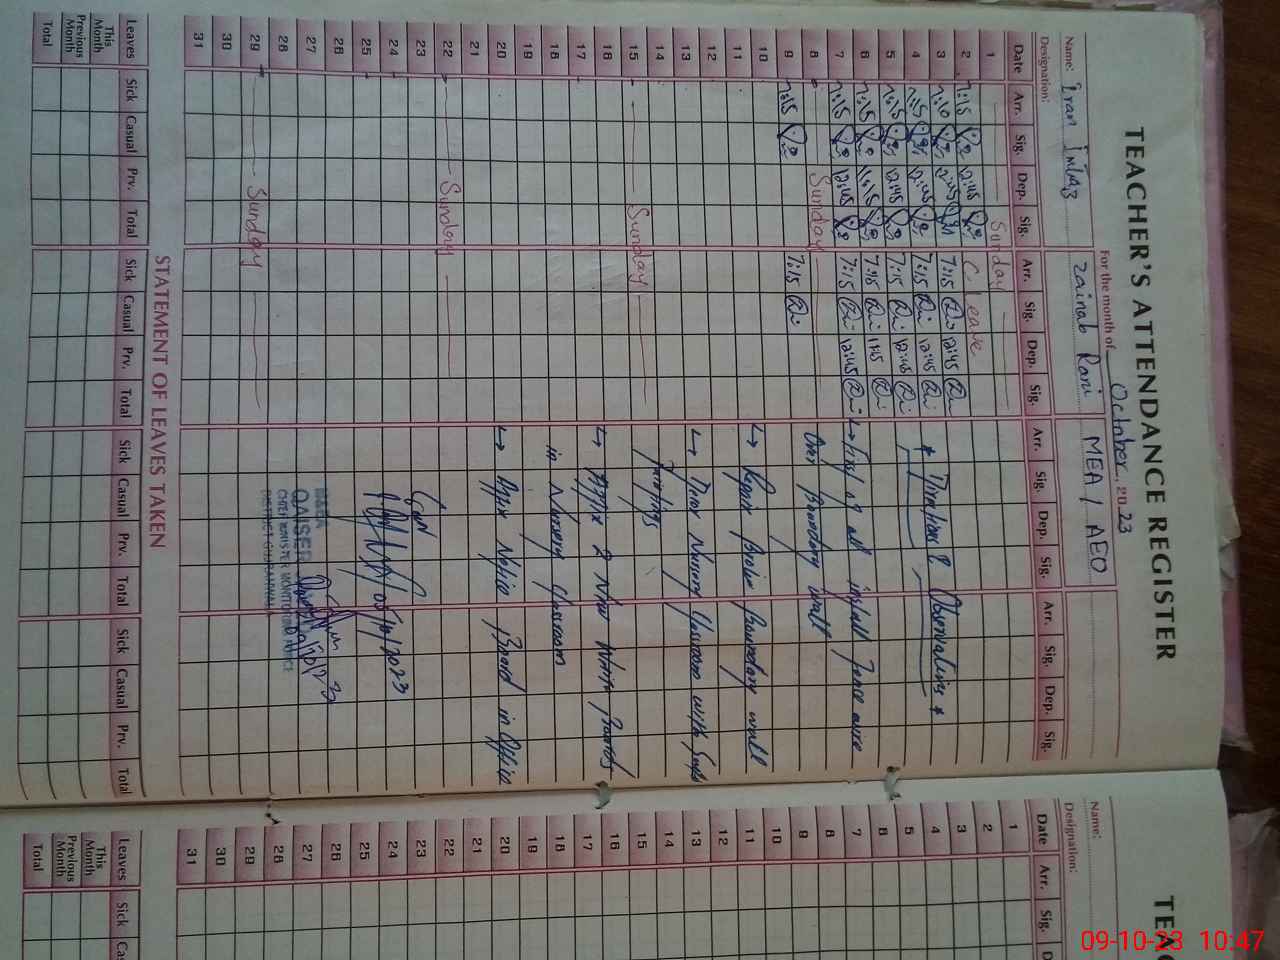 TEACHER'S ATTENDANCE REGISTER
For the month of October. 2023
Name: Iram Imtiaz Zainab Rani MEA / AEO
Designation:
Date Arr. Sig. Dep. Sig. Arr. Sig. Dep. Sig. Arr. Sig. Dep. Sig. Arr. Sig. Dep. Sig.
1 Sunday
2 7:15 12:45 C. leave
3 7:10 12:45 7:15 12:45
4 7:15 12:45 7:15 12:45
5 7:15 12:45 7:15 12:45
6 7:15 11:45 7:15 11:45
7 7:15 12:45 7:15 12:45
8 Sunday
9 7:15 7:15
10
11
12
13
14
15 Sunday
16
17
18
19
20
21
22 Sunday
23
24
25
26
27
28
29 Sunday
30
31
* Directions & Observations *
→ First of all install fence wire
over Boundary wall
→ Repair Broken Boundary wall
→ Decor Nursery Classroom with
Paintings
→ Affix 2 New White Boards
in Nursery Classroom
→ Affix Notice Board in Office
05/10/2023
QAISER
CHIEF MINISTER MONITORING FORCE
DISTRICT GUJRANWALA
STATEMENT OF LEAVES TAKEN
Leaves Sick Casual Prv. Total Sick Casual Prv. Total Sick Casual Prv. Total Sick Casual Prv. Total
This Month
Previous Month
Total
TEAC
Name:
Designation:
Date Arr. Sig. D
1
2
3
4
5
6
7
8
9
10
11
12
13
14
15
16
17
18
19
20
21
22
23
24
25
26
27
28
29
30
31
Leaves Sick Cas
This Month
Previous Month
Total
09-10-23 10:47